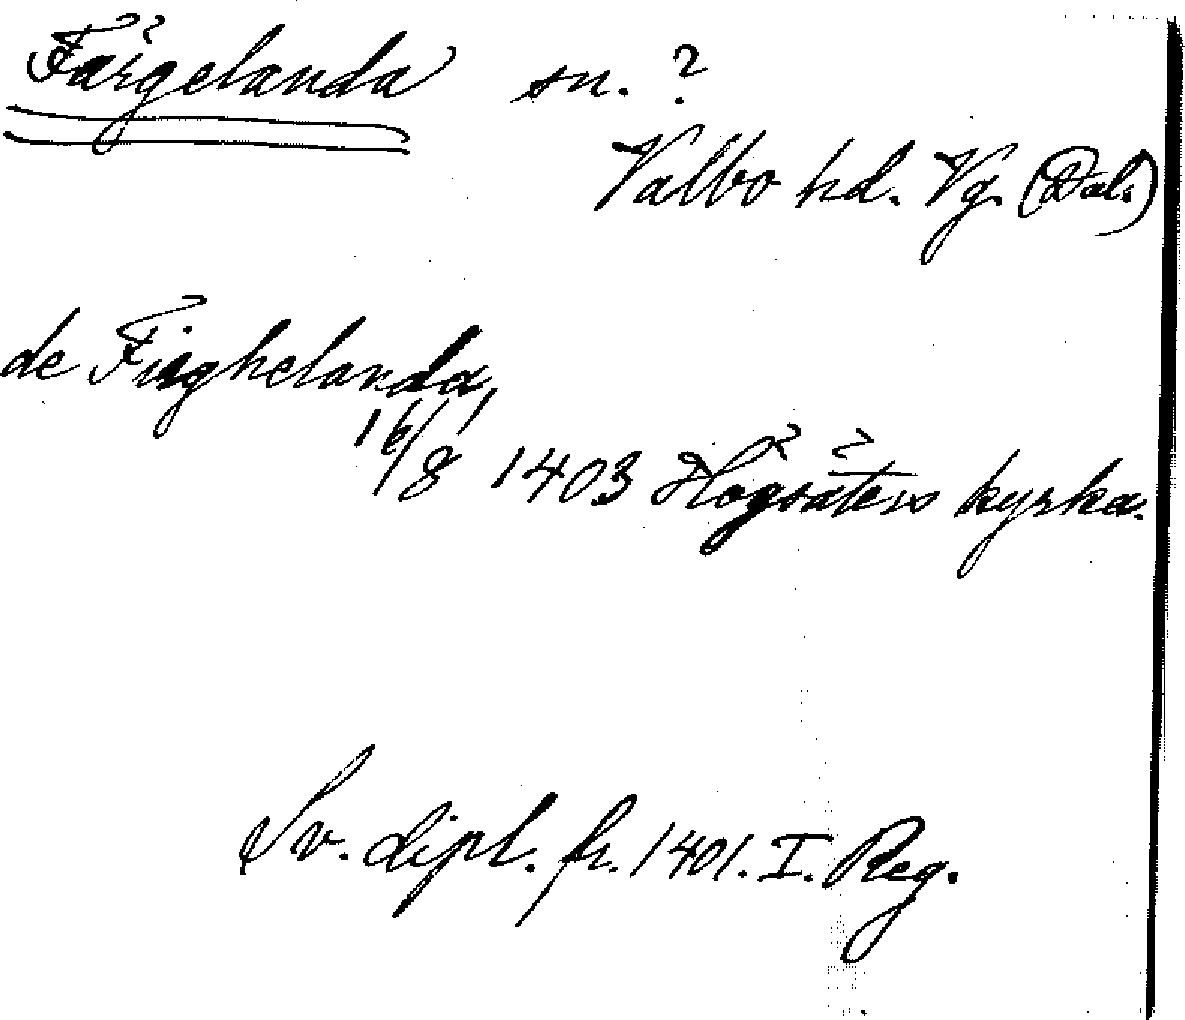 Färgelanda sn. ?
Valbo hd. Vg. (Dal.)
de Firghelanda,
16/8 1403 Högsäters kyrka.
Sv. dipl. fr. 1401. I. Reg.